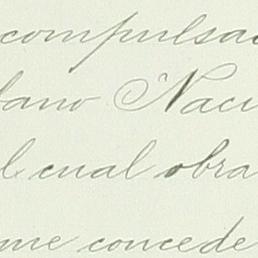 compulsa
dano Naci
l cual obra
me concede